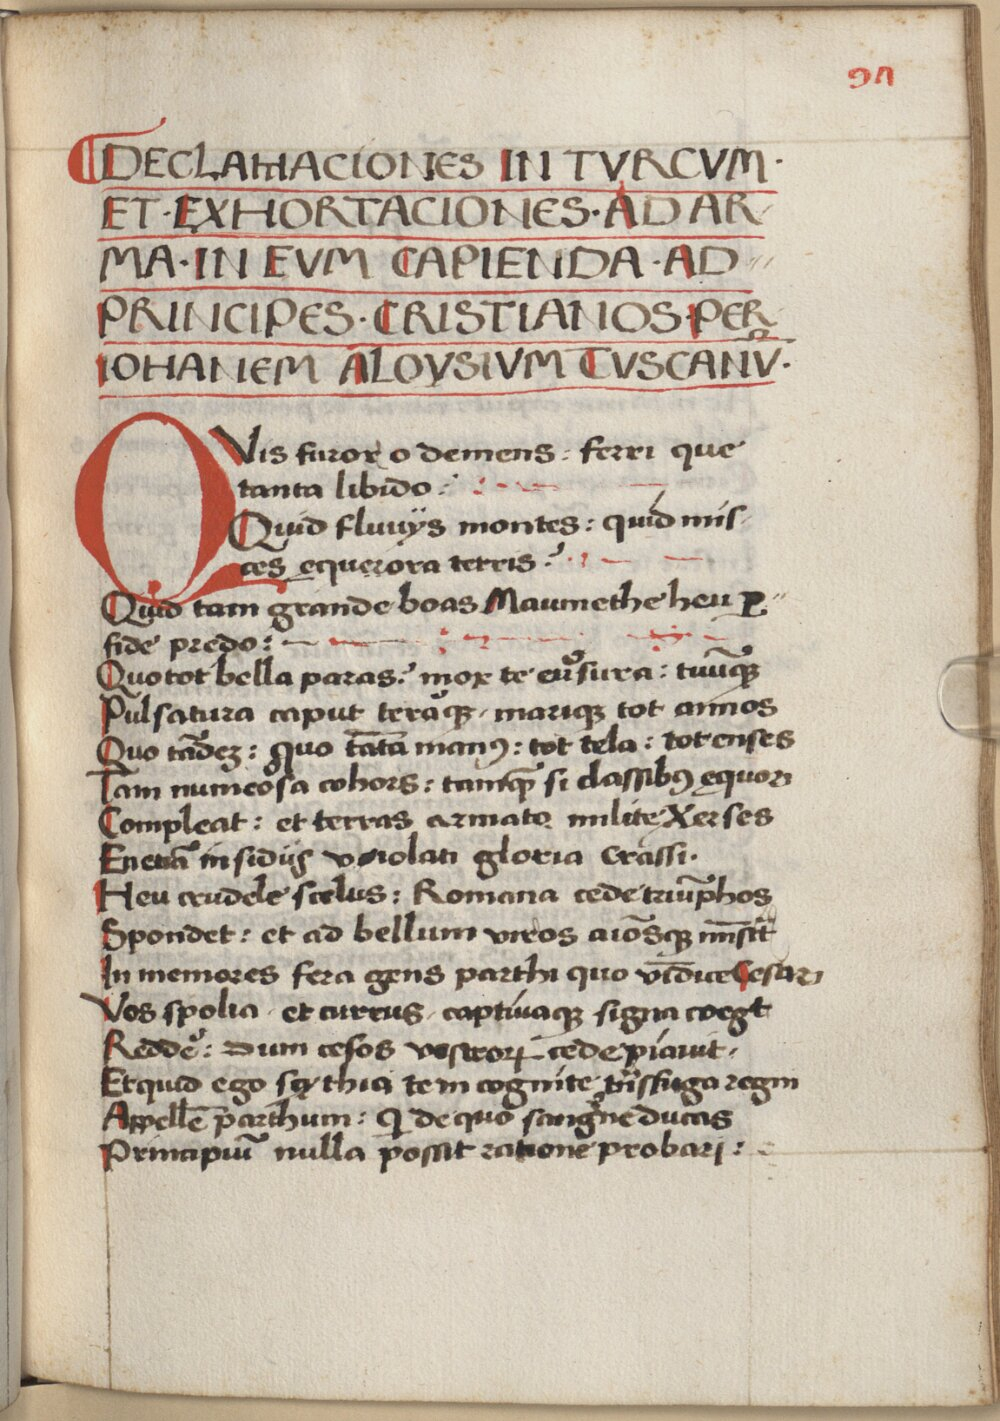 94
DECLAMACIONES IN TVRCVM·
ET·EXHORTACIONES·AD AR
MA·IN EVM CAPIENDA·AD
PRINCIPES·CRISTIANOS·PER
IOHANEM ALOYSIVM TVSCANV̄·
QVis furor o demens: ferri que
tanta libido:
Quid fluuijs montes: quid mis
ces equerora terris?
Quid tam grande boas Maumethe heu ꝑ
fide predo:
Quo tot bella paras? mox te
Pulsatura caput marique tot annos
Quo tādeꝫ: quo tāta manꝰ: tot tela: tot enses
Tam numeosa cohors: tamqꝫ si classibꝰ equori
Compleat: et terras armato milite Xerses
En etiā insidijs violati gloria Crassi·
Heu crudele scelus: Romana cede triūphos
Spondet: et ad bellum viros
In memores fera gens parthi quo vīdice Cesari
Vos spolia et currus captiuaqꝫ signa coegt
Redde᷑: Dum cesos vestroꝝ cede piauit·
Et quid ego scythia te in cognite regni
Appellē parthum: de quo ducas
Principiū nulla possit ratione probari: